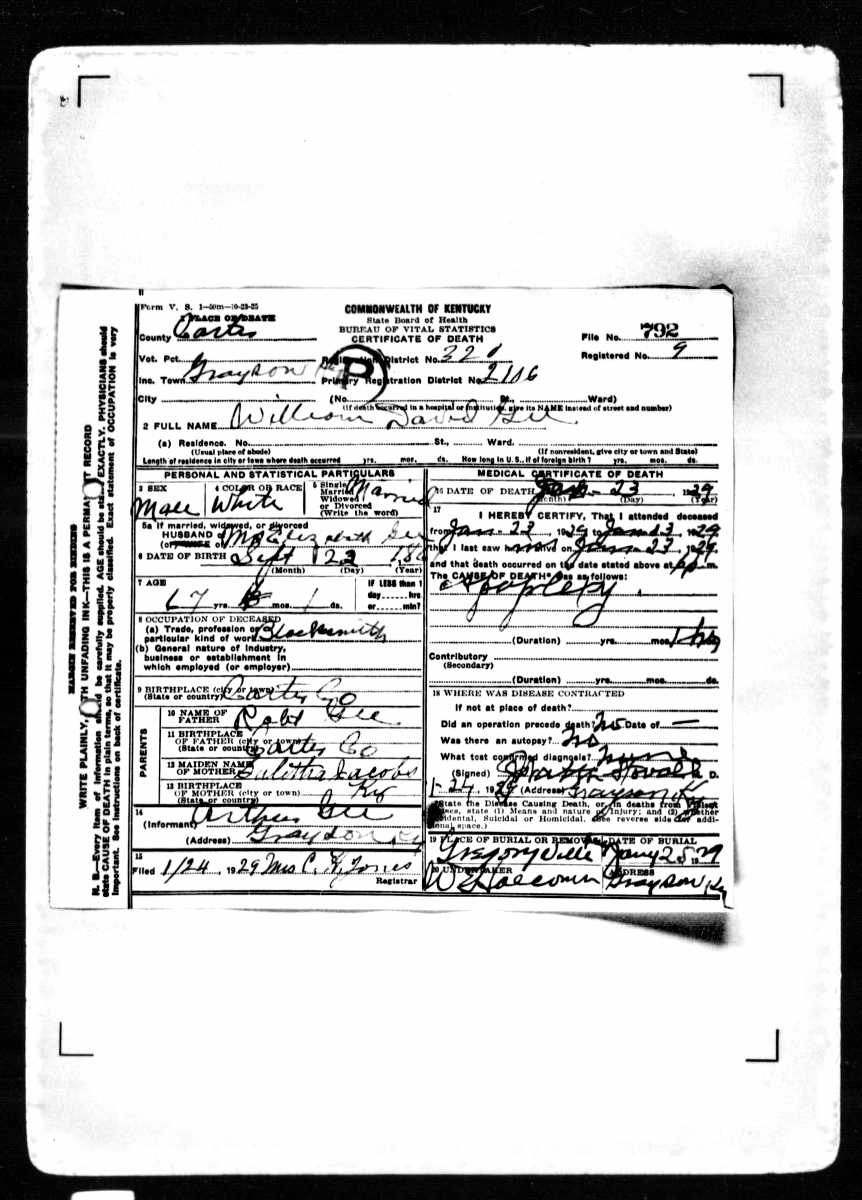 Form V. S. 1—50m—10-23-25
1 PLACE OF DEATH
COMMONWEALTH OF KENTUCKY
State Board of Health
BUREAU OF VITAL STATISTICS
CERTIFICATE OF DEATH
County Carter
File No. 792
Registered No. 9
Vot. Pct. Grayson Registration District No. 220
Inc. Town Primary Registration District No. 2106
P
City (No. St., Ward)
(If death occurred in a hospital or institution, give its NAME instead of street and number)
2 FULL NAME William David Gee
(a) Residence. No. St., Ward.
(Usual place of abode) (If nonresident, give city or town and State)
Length of residence in city or town where death occurred yrs. mos. ds. How long in U.S., if of foreign birth? yrs. mos. ds.
PERSONAL AND STATISTICAL PARTICULARS
3 SEX Male
4 COLOR OR RACE White
5 Single Married Widowed or Divorced (Write the word) Married
5a If married, widowed, or divorced
HUSBAND of (or) WIFE of Elizabeth Gee
6 DATE OF BIRTH Sept 22
(Month) (Day) (Year)
7 AGE 67 yrs. mos. 1 ds.
If LESS than 1 day hrs. or min?
8 OCCUPATION OF DECEASED
(a) Trade, profession or particular kind of work Blacksmith
(b) General nature of industry, business or establishment in which employed (or employer)
9 BIRTHPLACE (city or town) (State or country) Carter Co
PARENTS
10 NAME OF FATHER Robt Gee
11 BIRTHPLACE OF FATHER (city or town) (State or country) Carter Co
12 MAIDEN NAME OF MOTHER Jacobs
13 BIRTHPLACE OF MOTHER (city or town) (State or country) Ky
14 (Informant) Arthur Gee
(Address) Grayson Ky
15 Filed 1/24, 1929 Mrs C. Jones
Registrar
MEDICAL CERTIFICATE OF DEATH
16 DATE OF DEATH Jan 23, 1929
(Month) (Day) (Year)
17 I HEREBY CERTIFY, That I attended deceased
from Jan-23 1929 to Jan 23, 1929
that I last saw him alive on Jan-23, 1929
and that death occurred on the date stated above at m.
The CAUSE OF DEATH* was as follows:
Apoplexy
(Duration) yrs. mos. 1
Contributory
(Secondary)
(Duration) yrs. mos. ds.
18 WHERE WAS DISEASE CONTRACTED
If not at place of death?
Did an operation precede death? No Date of —
Was there an autopsy? No
What test confirmed diagnosis?
(Signed) Stovall M. D.
1-24, 1929 (Address) Grayson Ky
*State the Disease Causing Death, or, in deaths from Violent
Causes, state (1) Means and nature of Injury; and (2) whether
Accidental, Suicidal or Homicidal. (See reverse side for addi-
tional space.)
19 PLACE OF BURIAL OR REMOVAL DATE OF BURIAL
Gregoryville Jany 25 1929
20 UNDERTAKER ADDRESS
Grayson Ky
MARGIN RESERVED FOR BINDING
WRITE PLAINLY, WITH UNFADING INK—THIS IS A PERMANENT RECORD
N. B.—Every item of information should be carefully supplied. AGE should be stated EXACTLY. PHYSICIANS should
state CAUSE OF DEATH in plain terms, so that it may be properly classified. Exact statement of OCCUPATION is very
important. See instructions on back of certificate.